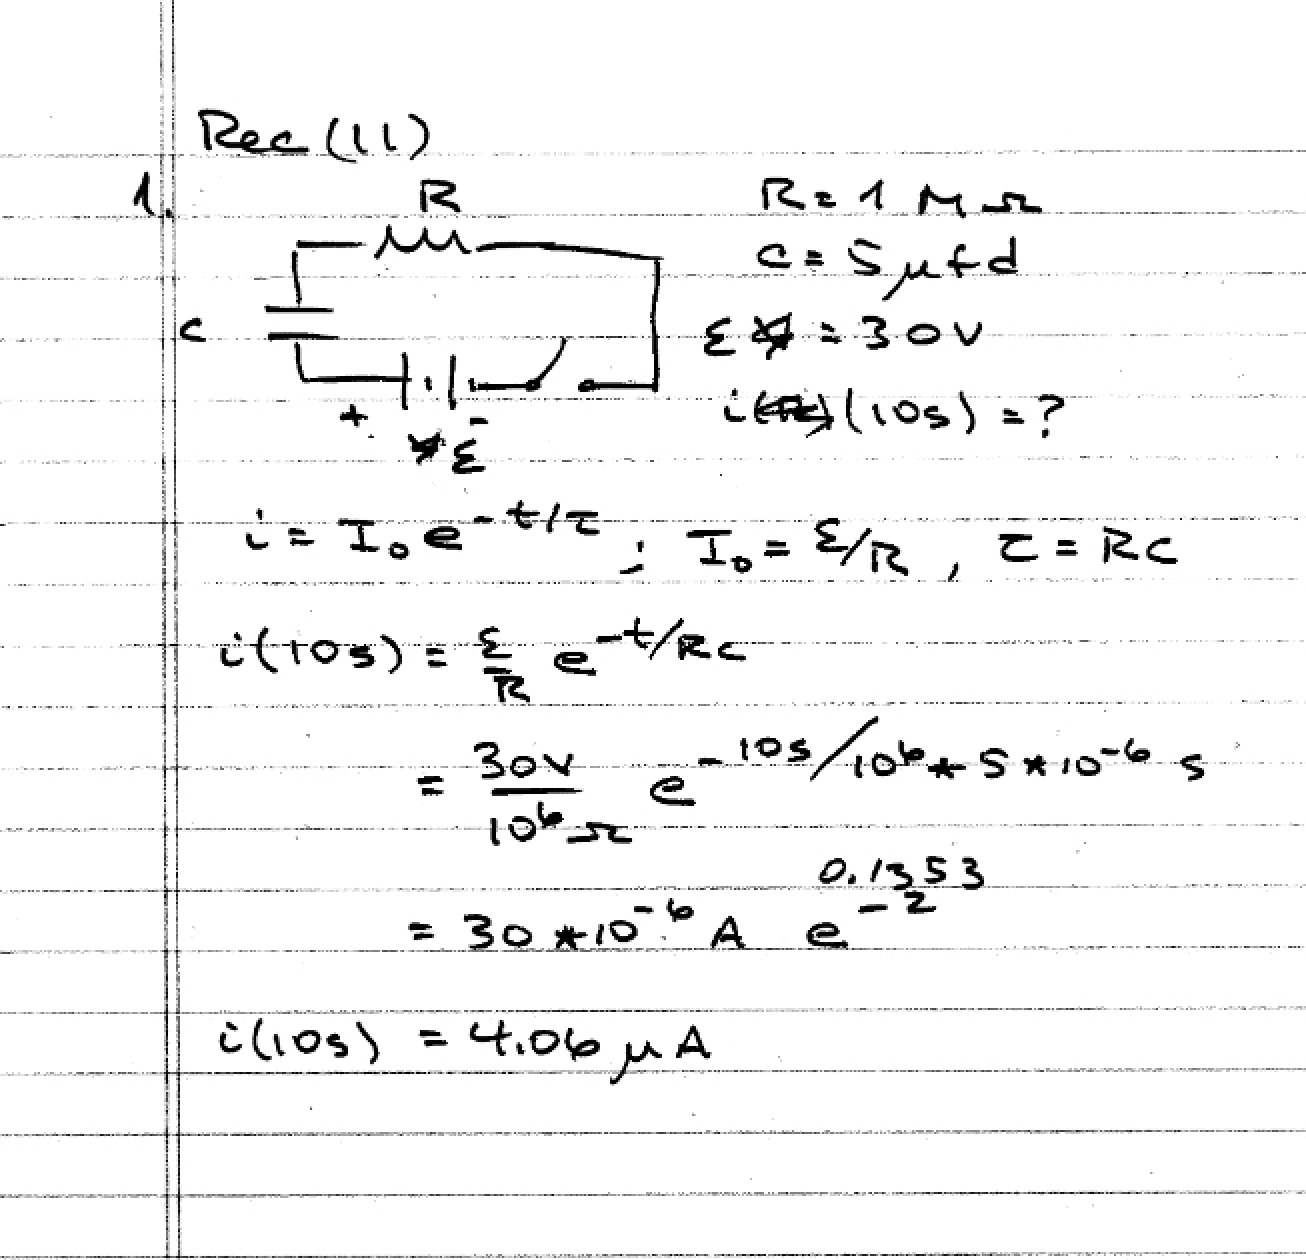 Rec (11)
1.
R
R = 1 MΩ
C = 5 μfd
C
ε = 30V
i (10s) = ?
+ -
ε
i = I₀ e^-t/τ ; I₀ = ε/R , τ = RC
i(10s) = ε/R e^-t/RC
= 30V/10⁶Ω e^-10s/10⁶*5*10^-6 s
0.1353
= 30*10^-6 A e^-2
i(10s) = 4.06 μA